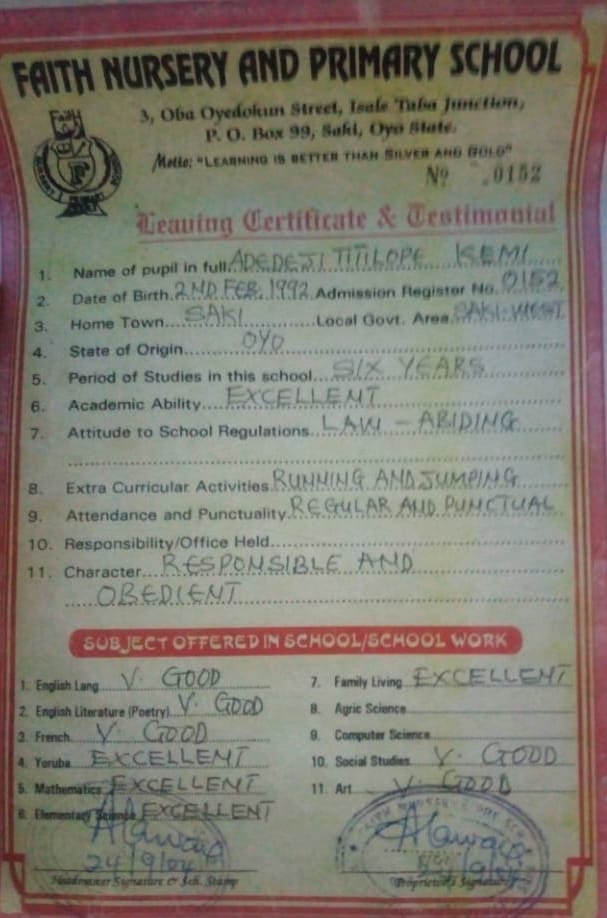 FAITH NURSERY AND PRIMARY SCHOOL
3, Oba Oyedokun Street, Isale Taba Junction,
P. O. Box 99, Saki, Oyo State.
Motto: "LEARNING IS BETTER THAN SILVER AND GOLD"
FAITH
F
Nº .0152
Leaving Certificate & Testimonial
1. Name of pupil in full ADEDEJI TITILOPE KEMI
2. Date of Birth 2ND FEB. 1992 Admission Register No. 0152
3. Home Town SAKI Local Govt. Area SAKI-WEST
4. State of Origin OYO
5. Period of Studies in this school SIX YEARS
6. Academic Ability EXCELLENT
7. Attitude to School Regulations LAW - ABIDING
8. Extra Curricular Activities RUNNING AND JUMPING
9. Attendance and Punctuality REGULAR AND PUNCTUAL
10. Responsibility/Office Held
11. Character RESPONSIBLE AND
OBEDIENT
SUBJECT OFFERED IN SCHOOL/SCHOOL WORK
1. English Lang V. GOOD
2. English Literature (Poetry) V. GOOD
3. French V. GOOD
4. Yoruba EXCELLENT
5. Mathematics EXCELLENT
6. Elementary Science EXCELLENT
24/9/04
Headmaster Signature & Sch. Stamp
7. Family Living EXCELLENT
8. Agric Science
9. Computer Science
10. Social Studies V. GOOD
11. Art V. GOOD
FAITH NURSERY
Proprietor's Signature